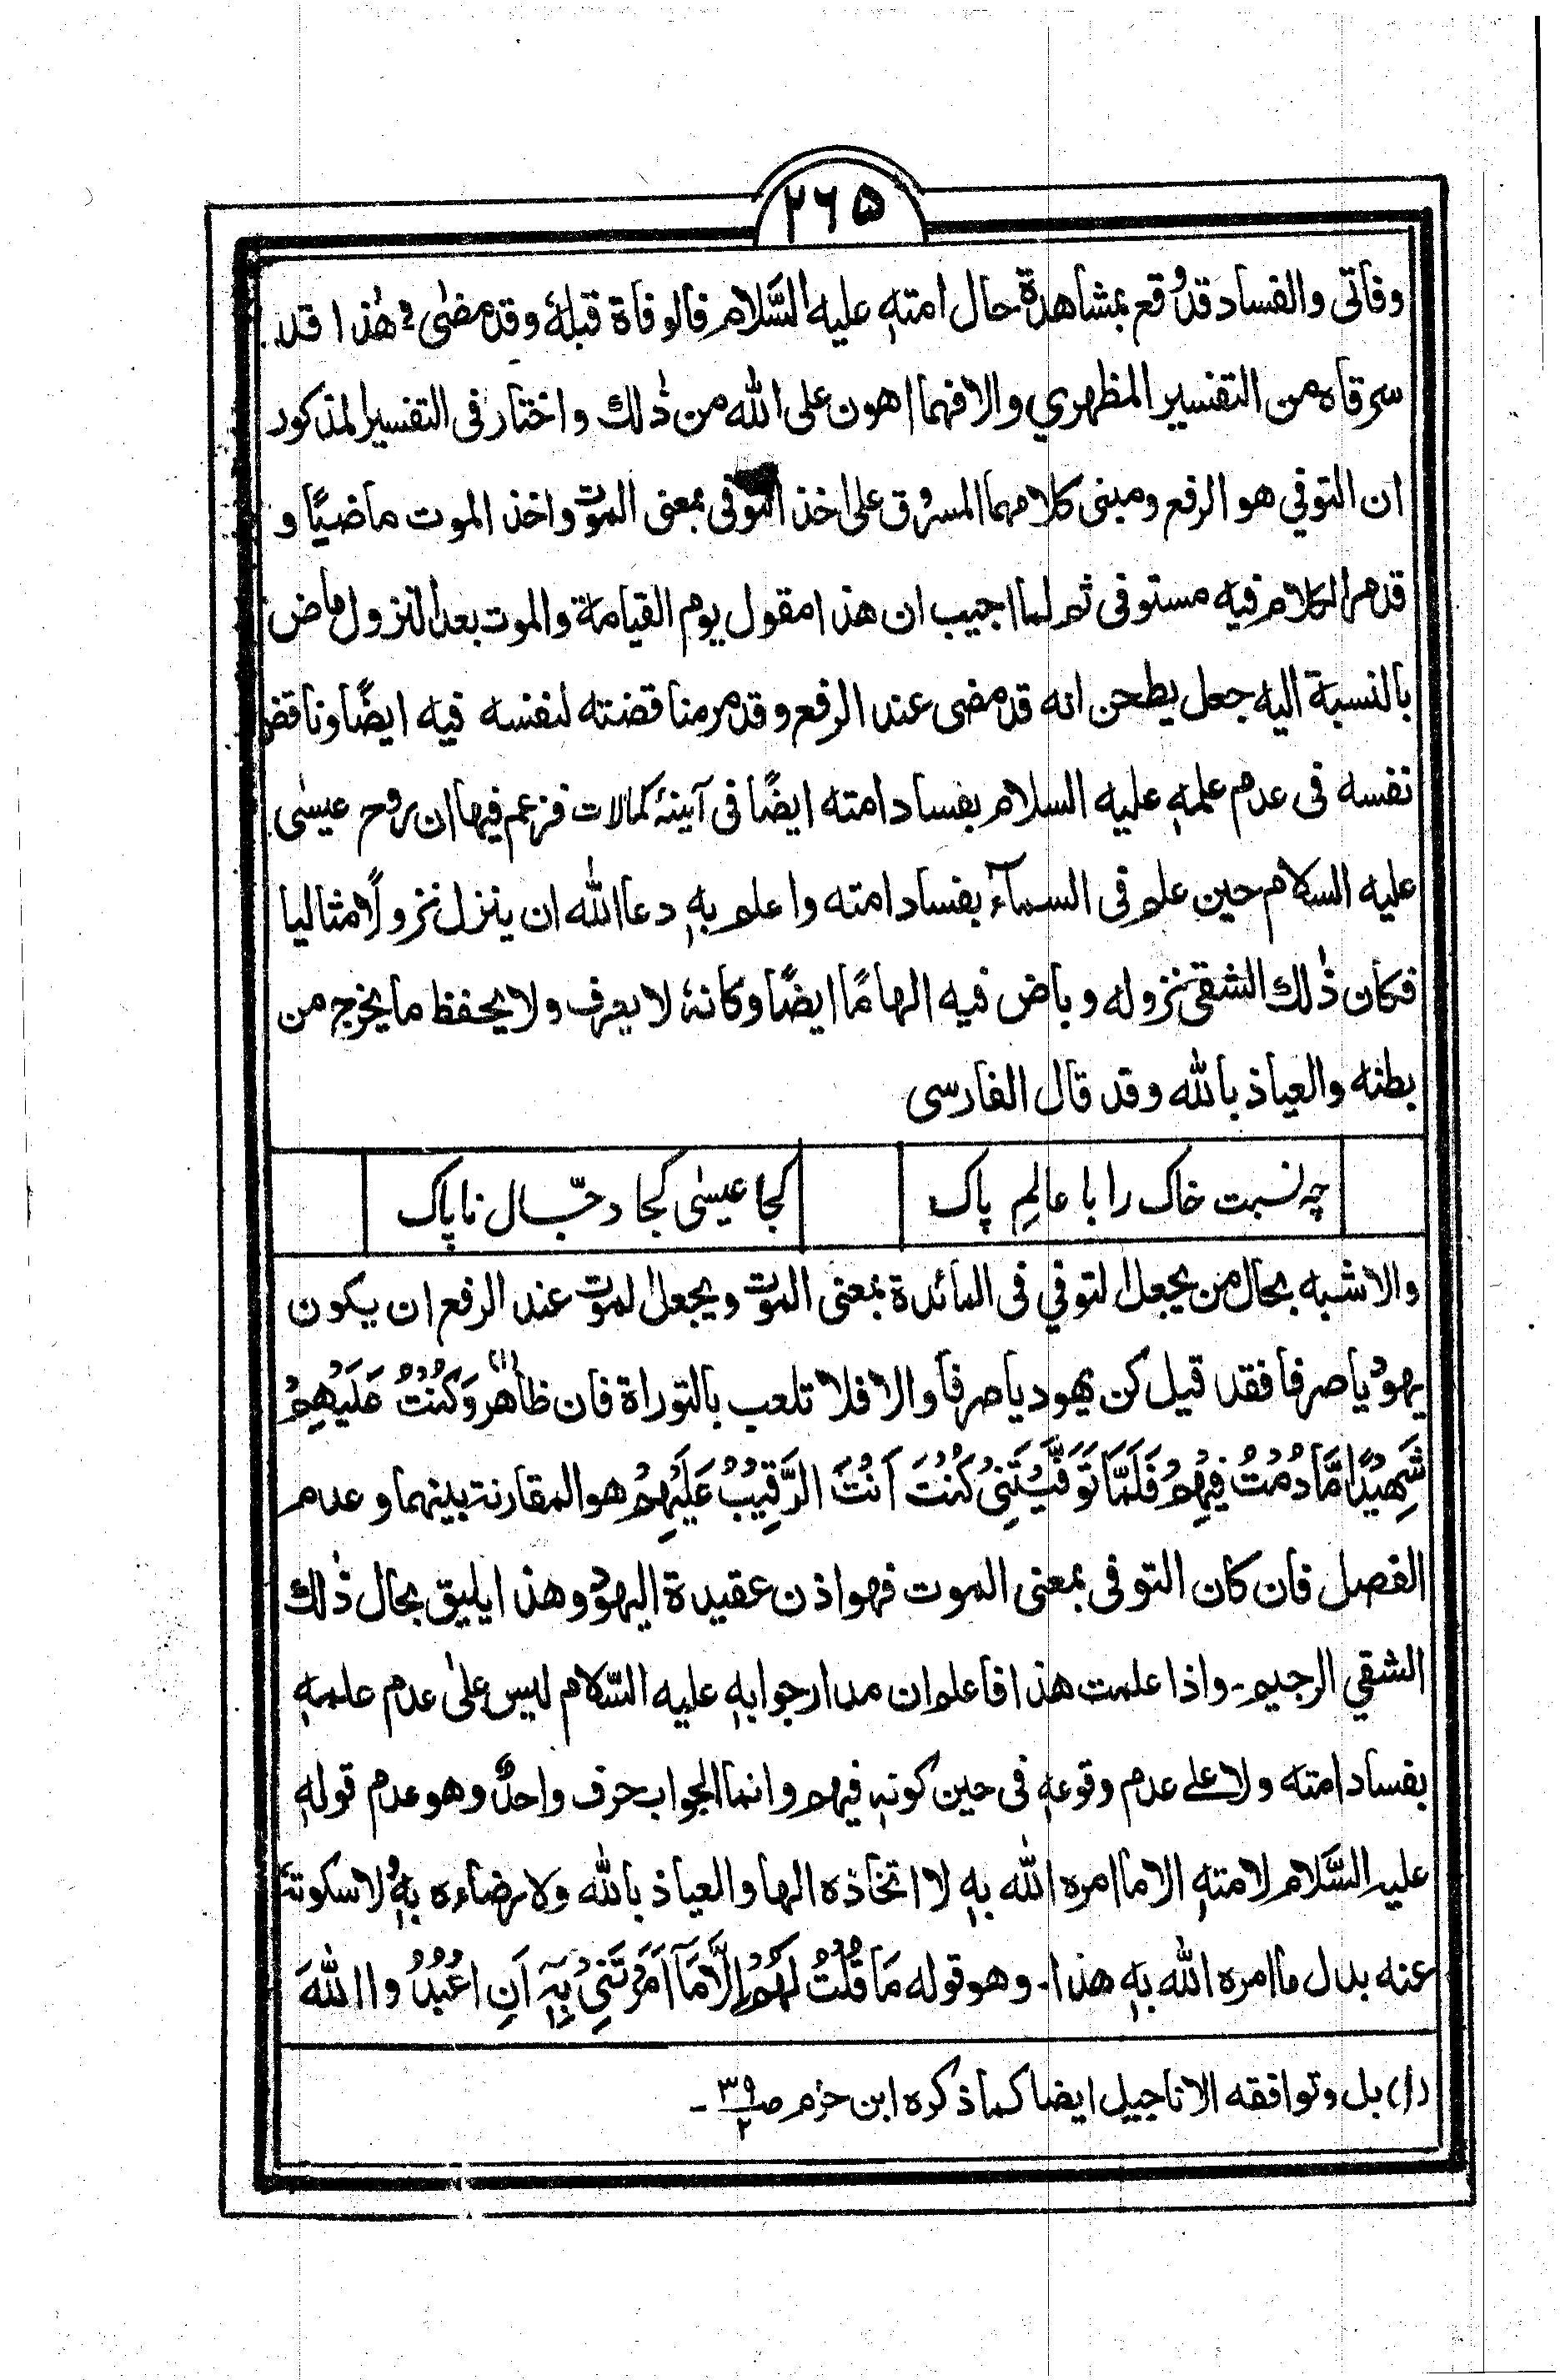 ۲۶۵
وفاتی والفساد قد وقع بمشاهدة حال امتهٖ علیه السَّلام فالوفاة قبلهٗ وقد مضٰی و هٰذا قد
سرقاه من التفسیر المظهري والا فهما اهون علی الله من ذٰلك واختار فی التفسیر المذکور
ان التوفي هو الرفع ومبنی کلامهما المسروق علی اخذ التوفی بمعنی الموت واخذ الموت ماضیًا و
قد مر الکلام فیه مستوفی ثم لما اجیب ان هذا مقول یوم القیامة والموت بعد النزول ماض
بالنسبة الیه جعل یطحن انه قد مضی عند الرفع وقد مر مناقضته لنفسه فیه ایضًا وناقض
نفسه فی عدم علمهٖ علیه السلام بفساد امته ایضًا فی آیینۂ کمالات فزعم فیها ان روح عیسٰی
علیه السلام حین علم فی السمآء بفساد امته واعلم بهٖ دعا الله ان ینزل نزولًا مثالیا
فکان ذٰلك الشقی نزوله وباض فیه الهامًا ایضًا وکانهٗ لا یعرف ولا یحفظ ما یخرج من
بطنه والعیاذ بالله وقد قال الفارسی
چه نسبت خاک را با عالمِ پاک	کجا عیسٰی کجا دجّال ناپاک
والاشبه بحال من یجعل التوفي فی المائدة بمعنی الموت ویجعل الموت عند الرفع ان یکون
یهودیا صرفا فقد قیل کن یهودیا صرفا والا فلا تلعب بالتوراة فان ظاهر (۱) وَکُنْتُ عَلَیْهِمْ
شَهِیْدًا مَّا دُمْتُ فِیْهِمْ فَلَمَّا تَوَفَّیْتَنِیْ کُنْتَ اَنْتَ الرَّقِیْبُ عَلَیْهِمْ هو المقارنة بینهما وعدم
الفصل فان کان التوفی بمعنی الموت فهو اذن عقیدة الیهود وهذا یلیق بحال ذٰلك
الشقي الرجیم۔ واذا علمت هذا فاعلم ان مدار جوابهٖ علیه السّلام لیس علٰی عدم علمهٖ
بفساد امته ولا علے عدم وقوعهٖ فی حین کونهٖ فیهم وانما الجواب حرف واحدٌ وهو عدم قولهٖ
علیه السَّلام لامتهٖ الا ما امره الله بهٖ لا اتخاذه الها والعیاذ بالله ولا رضاءه بهٖ ولا سکوتهٗ
عنه بدل ما امره الله بهٖ هذا۔ وهو قوله مَا قُلْتُ لَهُمْ اِلَّا مَآ اَمَرْتَنِیْ بِهٖٓ اَنِ اعْبُدُوا اللهَ
(۱) بل وتوافقه الاناجیل ایضا کما ذکره ابن حزم صـ ۳۹/۲ ۔